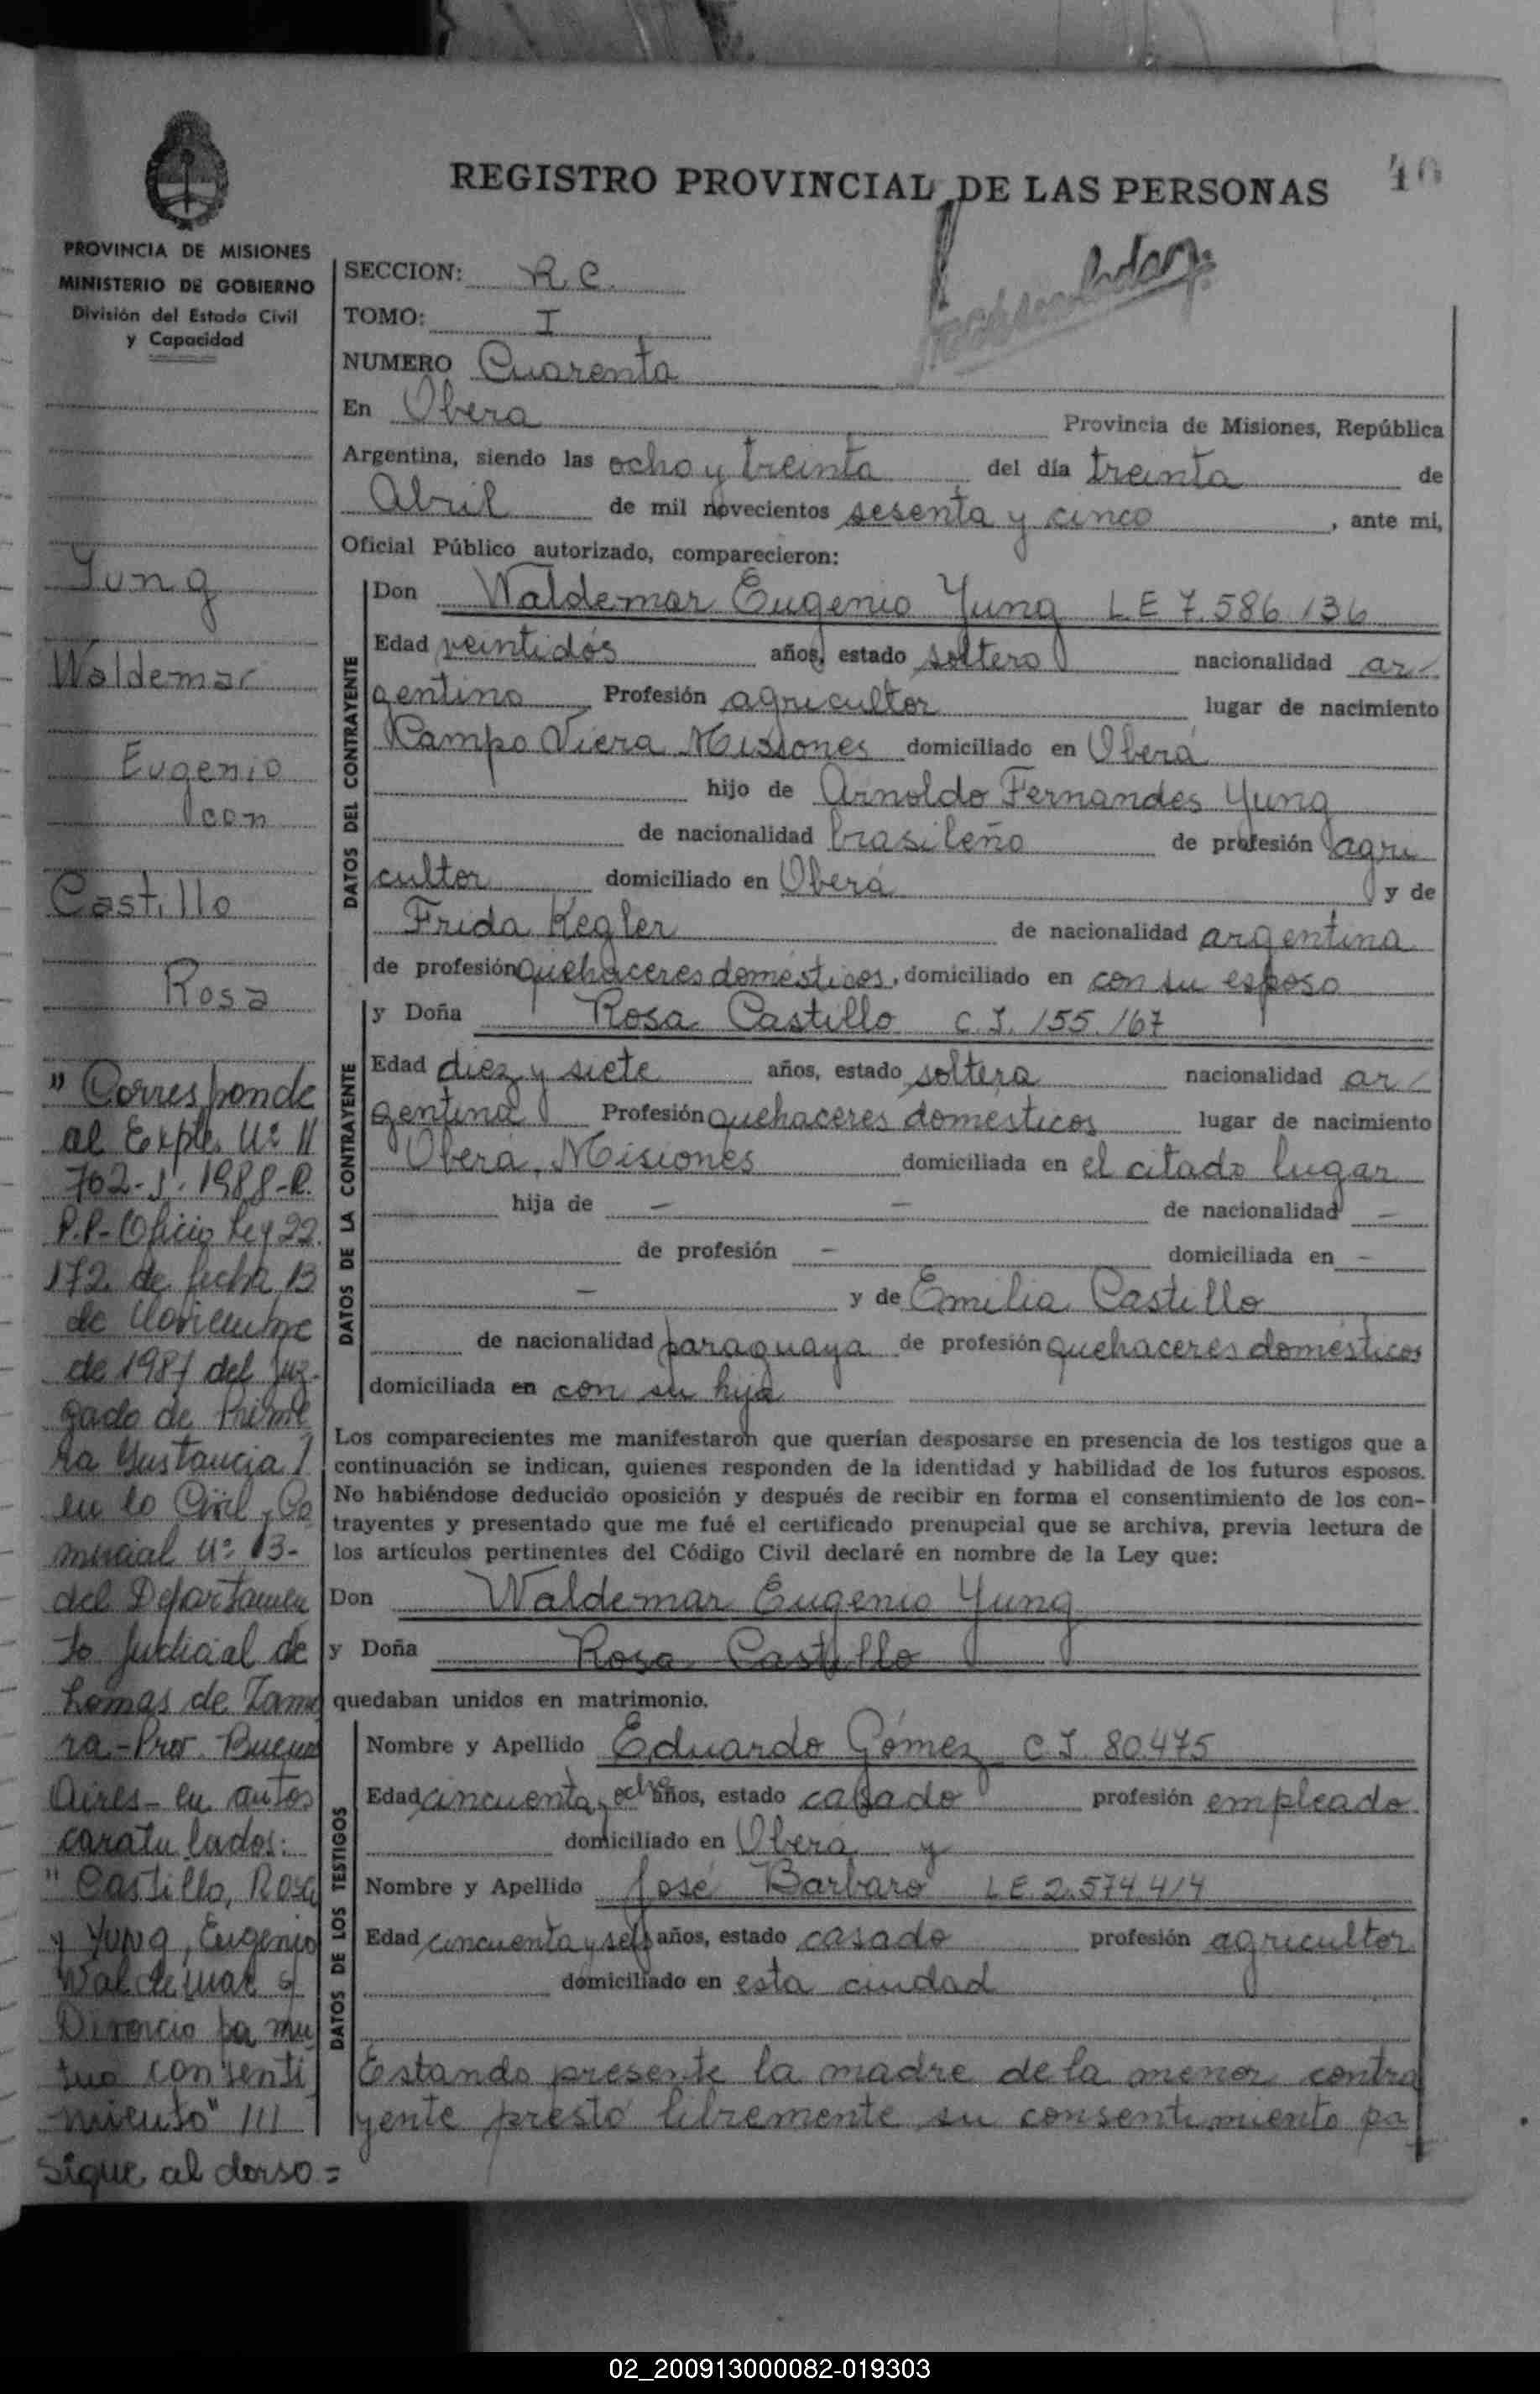 40
REGISTRO PROVINCIAL DE LAS PERSONAS
PROVINCIA DE MISIONES
MINISTERIO DE GOBIERNO
División del Estado Civil
y Capacidad
SECCION: R.C.
TOMO: I
NUMERO Cuarenta
En Obera Provincia de Misiones, República
Argentina, siendo las ocho y treinta del día treinta de
Abril de mil novecientos sesenta y cinco, ante mi,
Oficial Público autorizado, comparecieron:
Yung
Waldemar
Eugenio
con
Castillo
Rosa
DATOS DEL CONTRAYENTE
Don Waldemar Eugenio Yung LE 7.586.136
Edad veintidós años, estado soltero nacionalidad ar-
gentino Profesión agricultor lugar de nacimiento
Campo Viera Misiones domiciliado en Oberá
hijo de Arnoldo Fernandes Yung
de nacionalidad brasileño de profesión agri
cultor domiciliado en Oberá y de
Frida Kegler de nacionalidad argentina
de profesión quehaceres domésticos, domiciliado en con su esposo
DATOS DE LA CONTRAYENTE
y Doña Rosa Castillo C.I. 155.167
Edad diez y siete años, estado soltera nacionalidad ar-
gentina Profesión quehaceres domésticos lugar de nacimiento
Oberá, Misiones domiciliada en el citado lugar
hija de — — de nacionalidad —
de profesión — domiciliada en —
— y de Emilia Castillo
de nacionalidad paraguaya de profesión quehaceres domésticos
domiciliada en con su hija
Los comparecientes me manifestaron que querían desposarse en presencia de los testigos que a
continuación se indican, quienes responden de la identidad y habilidad de los futuros esposos.
No habiéndose deducido oposición y después de recibir en forma el consentimiento de los con-
trayentes y presentado que me fué el certificado prenupcial que se archiva, previa lectura de
los artículos pertinentes del Código Civil declaré en nombre de la Ley que:
Don Waldemar Eugenio Yung
y Doña Rosa Castillo
quedaban unidos en matrimonio.
DATOS DE LOS TESTIGOS
Nombre y Apellido Eduardo Gómez C.I. 80.475
Edad cincuenta y ocho años, estado casado profesión empleado
domiciliado en Oberá y
Nombre y Apellido José Barbaro L.E. 2.574.414
Edad cincuenta y seis años, estado casado profesión agricultor
domiciliado en esta ciudad
Estando presente la madre de la menor contra
yente prestó libremente su consentimiento pa
" Corresponde
al Expte. Nº 11
702-J-1988-R.
P.P- Oficio Ley 22.
172 de fecha 13
de Noviembre
de 1987 del Juz-
gado de Prime
ra Instancia
en lo Civil y Co
mercial Nº 13-
del Departamen
to Judicial de
Lomas de Zamo
ra-Prov. Buenos
Aires- en autos
caratulados:
" Castillo, Rosa
y Yung, Eugenio
Waldemar s/
Divorcio por mu
tuo consenti
miento" ///
Sigue al dorso =
02_200913000082-019303